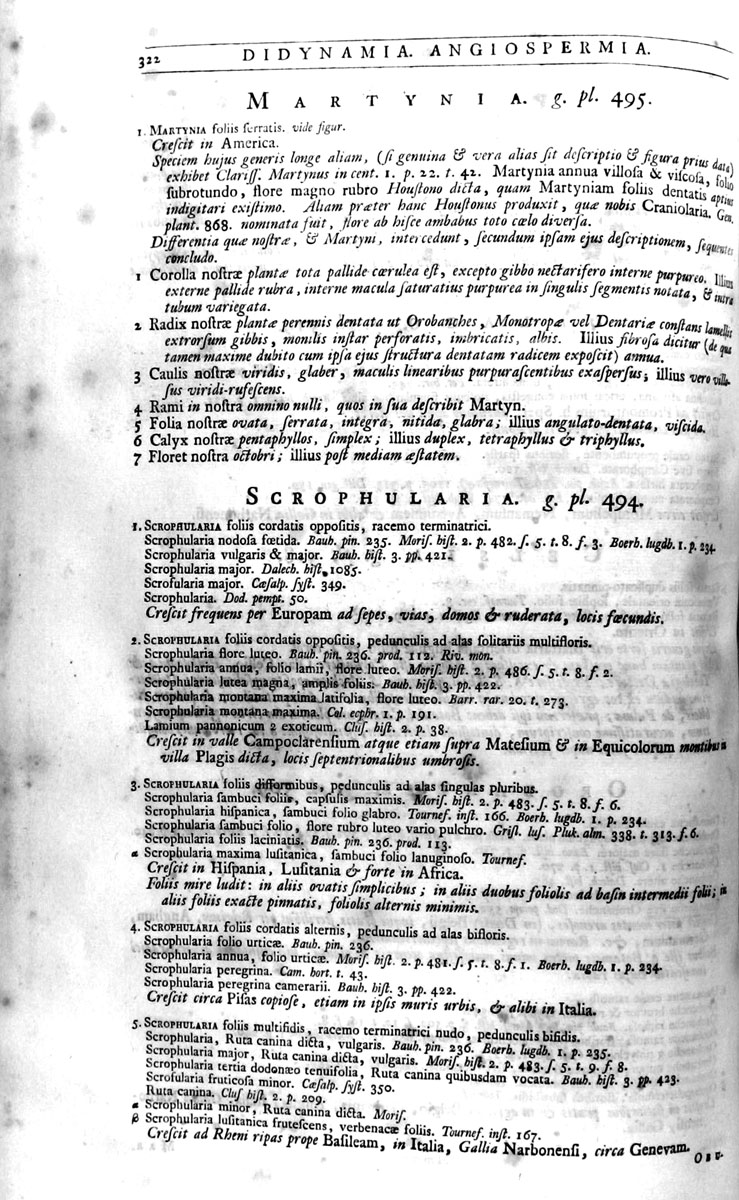 322
DIDYNAMIA. ANGIOSPERMIA.
MARTYNIA. g. pl. 495.
1. MARTYNIA foliis serratis. vide figur.
Crescit in America.
Speciem hujus generis longe aliam, (si genuina & vera alias sit descriptio & figura prius data)
exhibet Clariss. Martynus in cent. 1. p. 22. t. 42. Martynia annua villosa & viscosa, folio
subrotundo, flore magno rubro Houstono dicta, quam Martyniam foliis dentatis aptius
indigitari existimo. Aliam præter hanc Houstonus produxit, quæ nobis Craniolaria. Gen.
plant. 868. nominata fuit, flore ab hisce ambabus toto cœlo diversa.
Differentia quæ nostræ, & Martyni, intercedunt, secundum ipsam ejus descriptionem, sequentes
concludo.
1 Corolla nostræ plantæ tota pallide cœrulea est, excepto gibbo nectarifero interne purpureo. Illius
externe pallide rubra, interne macula saturatius purpurea in singulis segmentis notata, & intra
tubum variegata.
2 Radix nostræ plantæ perennis dentata ut Orobanches, Monotropæ vel Dentariæ constans lamellis
extrorsum gibbis, monilis instar perforatis, imbricatis, albis. Illius fibrosa dicitur (de qua
tamen maxime dubito cum ipsa ejus structura dentatam radicem exposcit) annua.
3 Caulis nostræ viridis, glaber, maculis linearibus purpurascentibus exaspersus; illius vero villo-
sus viridi-rufescens.
4 Rami in nostra omnino nulli, quos in sua describit Martyn.
5 Folia nostræ ovata, serrata, integra, nitida, glabra; illius angulato-dentata, viscida.
6 Calyx nostræ pentaphyllos, simplex; illius duplex, tetraphyllus & triphyllus.
7 Floret nostra octobri; illius post mediam æstatem.
SCROPHULARIA. g. pl. 494.
1. SCROPHULARIA foliis cordatis oppositis, racemo terminatrici.
Scrophularia nodosa fœtida. Bauh. pin. 235. Moris. hist. 2. p. 482. s. 5. t. 8. f. 3. Boerh. lugdb. 1. p. 234.
Scrophularia vulgaris & major. Bauh. hist. 3. pp. 421.
Scrophularia major. Dalech. hist. 1085.
Scrofularia major. Cæsalp. syst. 349.
Scrophularia. Dod. pempt. 50.
Crescit frequens per Europam ad sepes, vias, domos & ruderata, locis fœcundis.
2. SCROPHULARIA foliis cordatis oppositis, pedunculis ad alas solitariis multifloris.
Scrophularia flore luteo. Bauh. pin. 236. prod. 112. Riv. mon.
Scrophularia annua, folio lamii, flore luteo. Moris. hist. 2. p. 486. s. 5. t. 8. f. 2.
Scrophularia lutea magna, amplis foliis. Bauh. hist. 3. pp. 422.
Scrophularia montana maxima latifolia, flore luteo. Barr. rar. 20. t. 273.
Scrophularia montana maxima. Col. ecphr. 1. p. 191.
Lamium pannonicum 2 exoticum. Clus. hist. 2. p. 38.
Crescit in valle Campoclarensium atque etiam supra Matesium & in Equicolorum montibus in
villa Plagis dicta, locis septentrionalibus umbrosis.
3. SCROPHULARIA foliis difformibus, pedunculis ad alas singulas pluribus.
Scrophularia sambuci foliis, capsulis maximis. Moris. hist. 2. p. 483. s. 5. t. 8. f. 6.
Scrophularia hispanica, sambuci folio glabro. Tournef. inst. 166. Boerh. lugdb. 1. p. 234.
Scrophularia sambuci folio, flore rubro luteo vario pulchro. Grisl. lus. Pluk. alm. 338. t. 313. f. 6.
Scrophularia foliis laciniatis. Bauh. pin. 236. prod. 113.
α Scrophularia maxima lusitanica, sambuci folio lanuginoso. Tournef.
Crescit in Hispania, Lusitania & forte in Africa.
Foliis mire ludit: in aliis ovatis simplicibus; in aliis duobus foliolis ad basin intermedii folii; in
aliis foliis exacte pinnatis, foliolis alternis minimis.
4. SCROPHULARIA foliis cordatis alternis, pedunculis ad alas bifloris.
Scrophularia folio urticæ. Bauh. pin. 236.
Scrophularia annua, folio urticæ. Moris. hist. 2. p. 481. s. 5. t. 8. f. 1. Boerh. lugdb. 1. p. 234.
Scrophularia peregrina. Cam. hort. t. 43.
Scrophularia peregrina camerarii. Bauh. hist. 3. pp. 422.
Crescit circa Pisas copiose, etiam in ipsis muris urbis, & alibi in Italia.
5. SCROPHULARIA foliis multifidis, racemo terminatrici nudo, pedunculis bifidis.
Scrophularia, Ruta canina dicta, vulgaris. Bauh. pin. 236. Boerh. lugdb. 1. p. 235.
Scrophularia major, Ruta canina dicta, vulgaris. Moris. hist. 2. p. 483. s. 5. t. 9. f. 8.
Scrophularia tertia dodonæo tenuifolia, Ruta canina quibusdam vocata. Bauh. hist. 3. pp. 423.
Scrofularia fruticosa minor. Cæsalp. syst. 350.
Ruta canina. Clus hist. 2. p. 209.
α Scrophularia minor, Ruta canina dicta. Moris.
β Scrophularia lusitanica frutescens, verbenacæ foliis. Tournef. inst. 167.
Crescit ad Rheni ripas prope Basileam, in Italia, Gallia Narbonensi, circa Genevam.